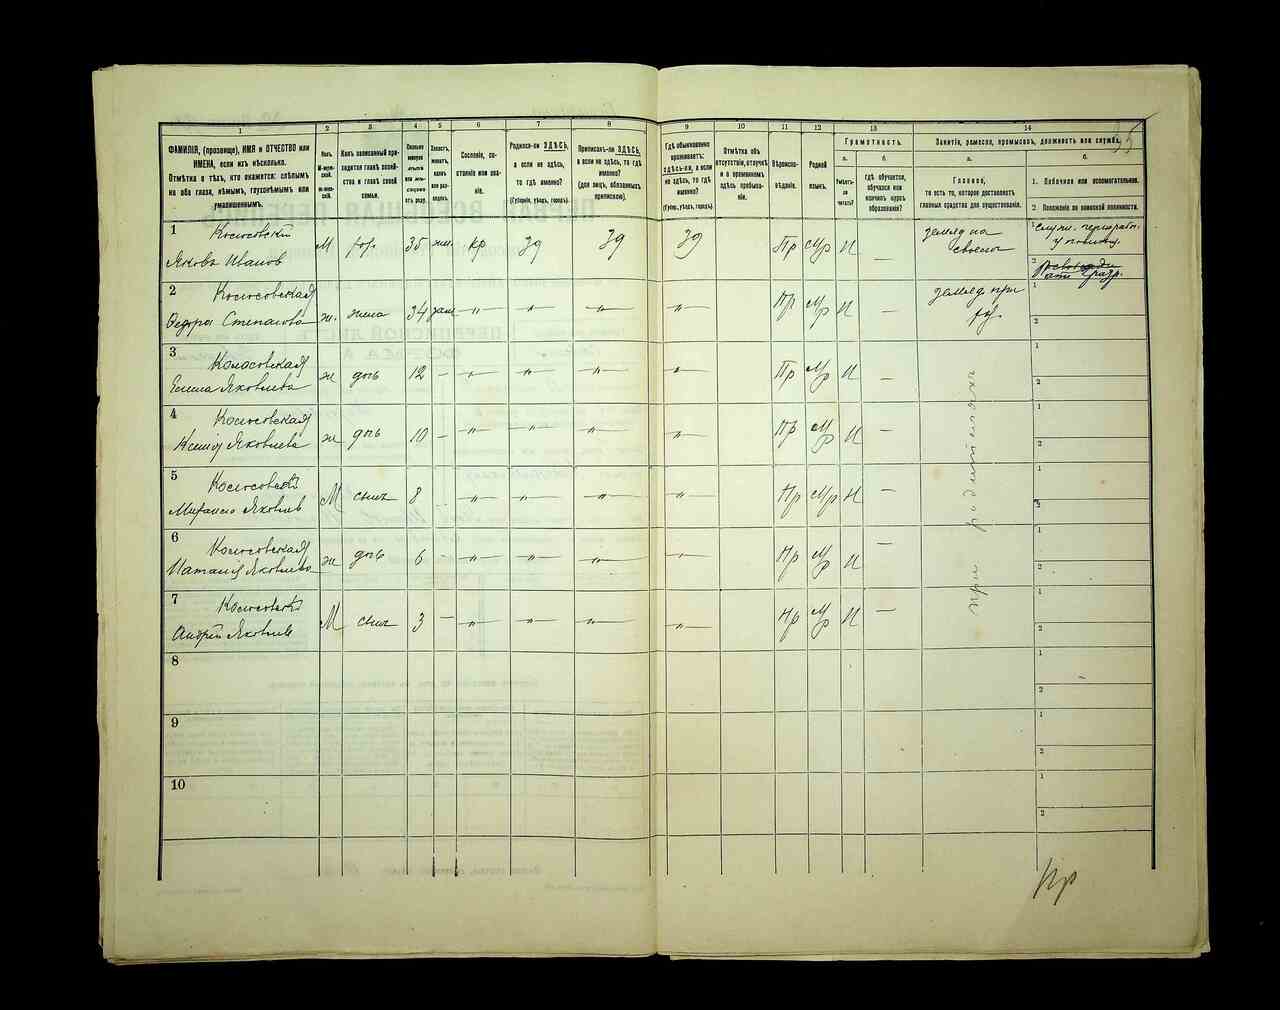 35
1
2
3
4
5
6
7
8
9
10
11
12
13
14
ФАМИЛІЯ, (прозвище), ИМЯ и ОТЧЕСТВО или
ИМЕНА, если ихъ нѣсколько.
Отмѣтка о тѣхъ, кто окажется: слѣпымъ
на оба глаза, нѣмымъ, глухонѣмымъ или
умалишеннымъ.
Полъ.
М-мужской.
Ж-женскій.
Какъ записанный приходится
главѣ хозяйства
и главѣ своей
семьи.
Сколько
минуло
лѣтъ
или мѣсяцевъ
отъ роду.
Холостъ,
женатъ,
вдовъ
или разведенъ.
Сословіе, состояніе
или званіе.
Родился-ли ЗДѢСЬ,
а если не здѣсь,
то гдѣ именно?
(Губернія, уѣздъ, городъ).
Приписанъ-ли ЗДѢСЬ,
а если не здѣсь, то гдѣ
именно?
(для лицъ, обязанныхъ
припискою).
Гдѣ обыкновенно
проживаетъ:
здѣсь-ли, а если
не здѣсь, то гдѣ
именно?
(Губерн., уѣздъ, городъ).
Отмѣтка объ
отсутствіи, отлучкѣ
и о временномъ
здѣсь пребываніи.
Вѣроисповѣданіе.
Родной
языкъ.
Грамотность.
а.
Умѣетъ-ли
читать?
б.
Гдѣ обучается,
обучался или
кончилъ курсъ
образованія?
Занятіе, ремесло, промыселъ, должность или служба.
а.
Главное,
то есть то, которое доставляетъ
главныя средства для существованія.
б.
1. Побочное или вспомогательное.
2. Положеніе по воинской повинности.
1
Колосовскій
Яковъ Иванов
М хоз. 35 жен. кр зд зд зд Пр Мр Н —
землед на
своей
1
2
2
Колосовская
Федора Степанова
ж. жена 34 зам —"— —"— —"— —"— Пр Мр Н —
землед при
хоз.
1
2
3
Колосовская
Елена Яковлева
ж дочь 12 - —"— —"— —"— —"— Пр Мр Н —
1
2
4
Колосовская
Ксенія Яковлева
ж дочь 10 - —"— —"— —"— —"— Пр Мр Н —
1
2
5
Колосовскій
Яковлев
М сынъ 8 - —"— —"— —"— —"— Пр Мр Н —
1
2
6
Колосовская
Наталія Яковлева
ж дочь 6 - —"— —"— —"— —"— Пр Мр Н —
1
2
7
Колосовскій
Андрей Яковлев
М сынъ 3 - —"— —"— —"— —"— Пр Мр Н —
1
2
при родителяхъ
8
1
2
9
1
2
10
1
2